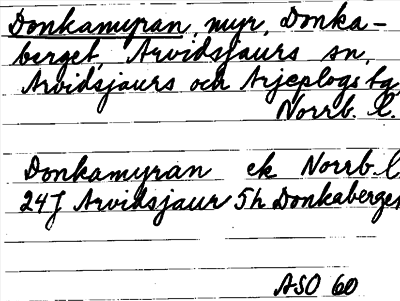 Donkamyran, myr, Donka-
berget, Arvidsjaurs sn,
Arvidsjaurs och Arjeplogs tg,
Norrb. l.
Donkamyran ek Norrb. l
24J Arvidsjaur 5h Donkaberget
ASO 60